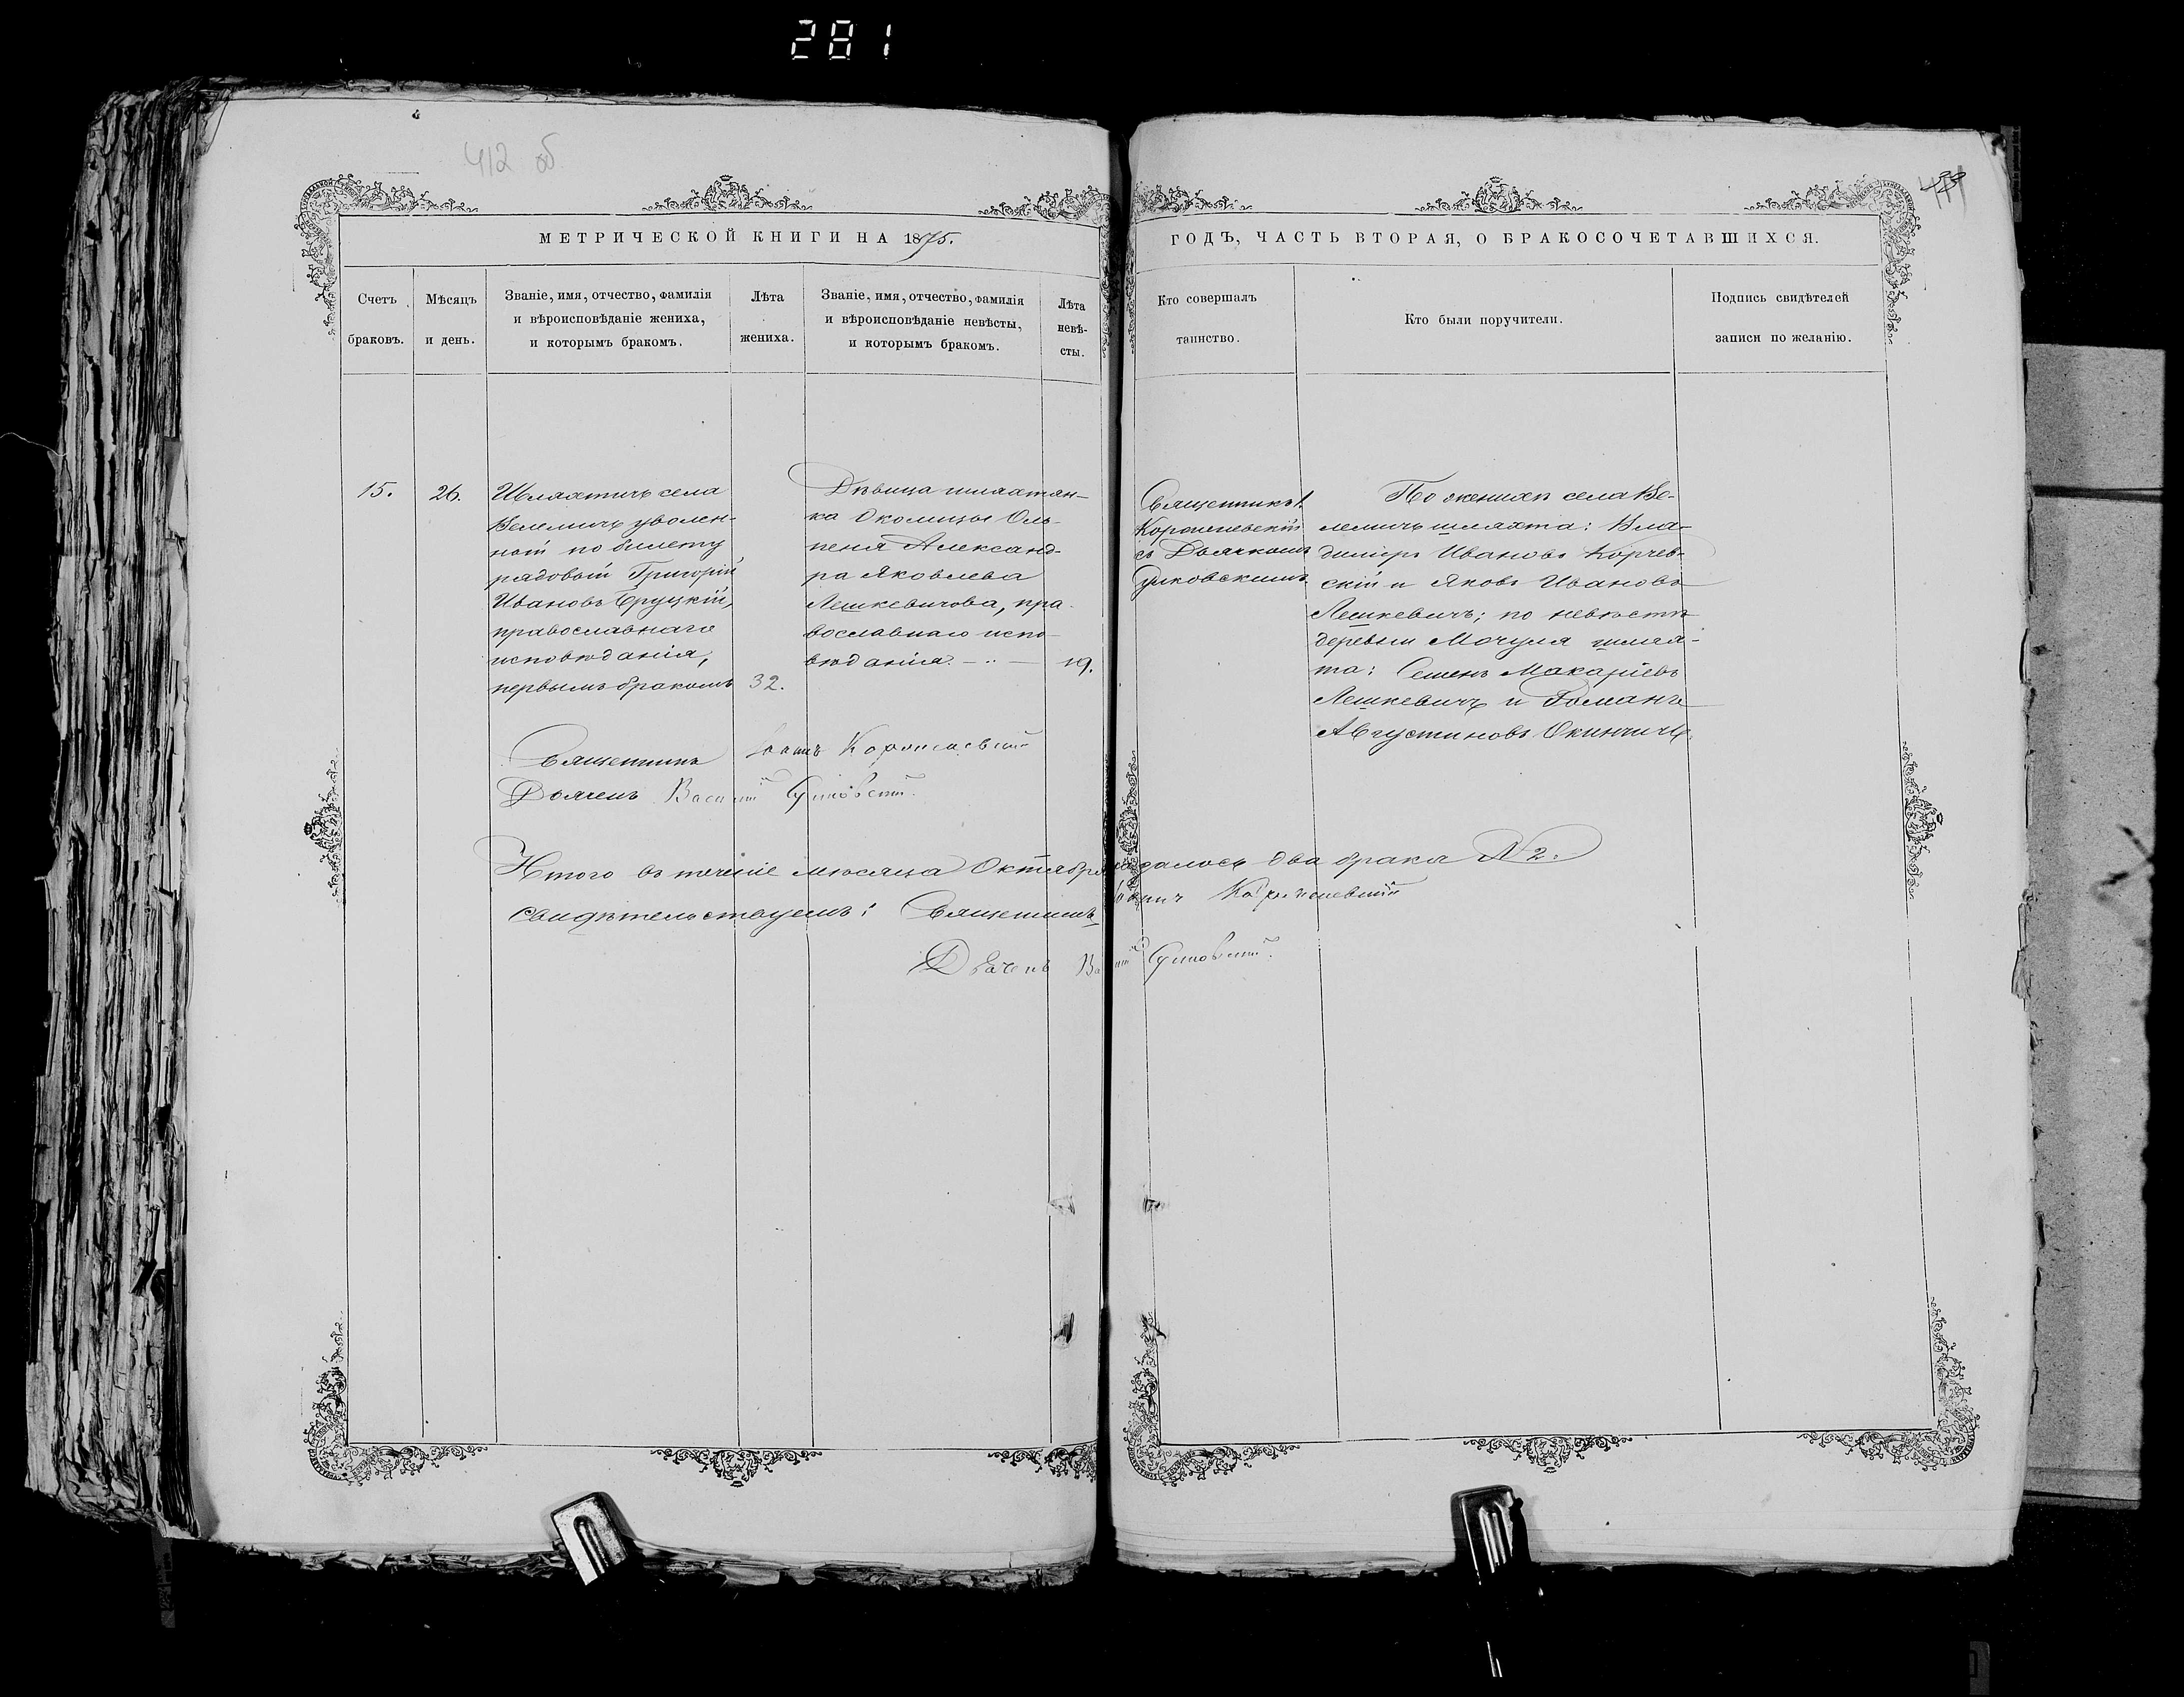 281
412 об
МЕТРИЧЕСКОЙ КНИГИ НА 1875.
ГОДЪ, ЧАСТЬ ВТОРАЯ, О БРАКОСОЧЕТАВШИХСЯ.
Счетъ браковъ.
Мѣсяцъ и день.
Званіе, имя, отчество, фамилія
и вѣроисповѣданіе жениха,
и которымъ бракомъ.
Лѣта
жениха.
Званіе, имя, отчество, фамилія
и вѣроисповѣданіе невѣсты,
и которымъ бракомъ.
Лѣта
невѣ-
сты.
Кто совершалъ
таинство.
Кто были поручители.
Подпись свидѣтелей
записи по желанію.
15.
26.
Шляхтичъ села
Велемичъ уволен-
ный по билету
рядовый Григорій
Ивановъ Бруцкій,
православнаго
исповѣданія,
первымъ бракомъ
32.
Дѣвица шляхтян-
ка Околицы Оль-
пеня Александ-
ра Яковлева
Лешкевичова, пра-
вославнаго испо-
вѣданія.
19.
Священникъ І.
съ Дьячкомъ
По женихѣ села Ве-
лемичъ шляхта: Вла-
димиръ Ивановъ Корчев-
скій и Яковъ Ивановъ
Лешкевичъ; по невѣстѣ
деревни Мочуля шлях-
та: Семенъ Макаріевъ
Лешкевичъ и Романъ
Августиновъ Окинчицъ.
Священникъ Іоаннъ
Дьячекъ Василій
Итого въ теченіе мѣсяца Октября два брака № 2.
Свидѣтельствуемъ: Священникъ Іоаннъ
Дьячекъ